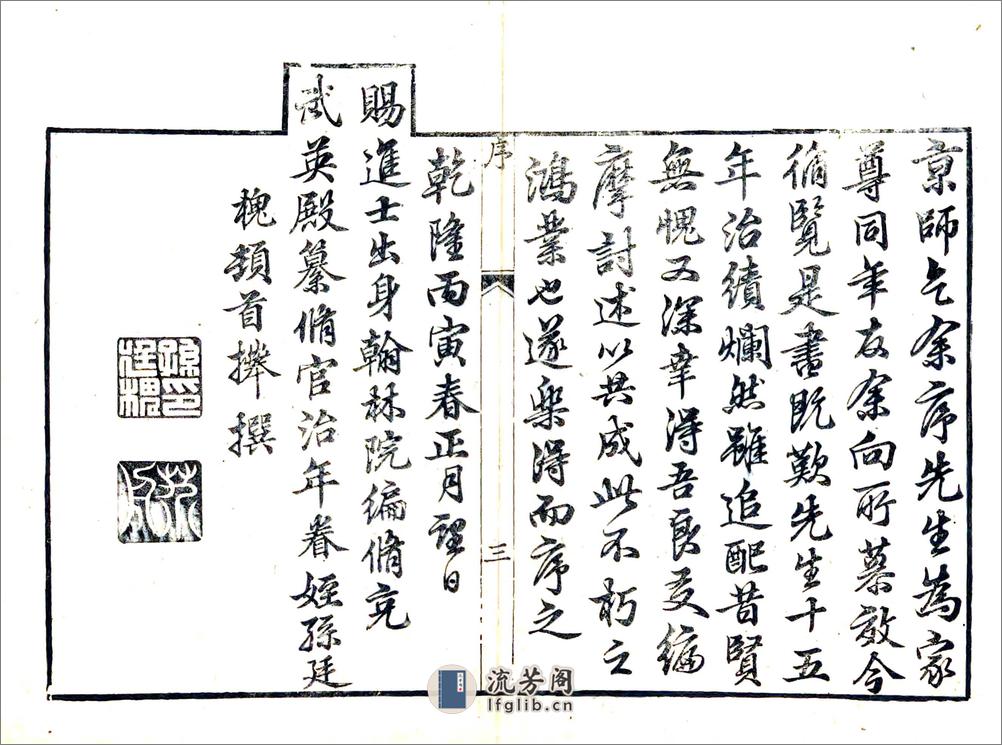 京師乞余序先生為家
尊同年友余向所慕效今
循覽是書既歎先生十五
年治績爛然雖追配昔賢
無愧又深幸得吾良友編
摩討述以共成此不朽之
鴻業也遂樂得而序之
乾隆丙寅春正月望日
賜進士出身翰林院編脩充
武英殿纂脩官治年眷姪孫廷
槐頓首拜撰
序
三
孫廷槐印
流芳阁
lfglib.cn